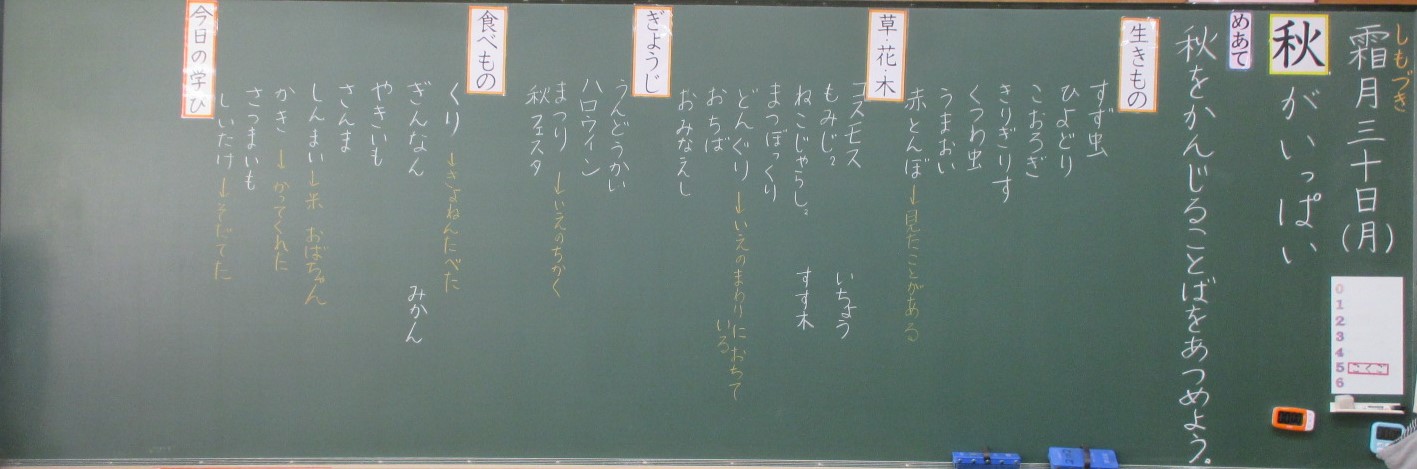 しもづき
霜月三十日(月)
秋がいっぱい
めあて
秋をかんじることばをあつめよう。
生きもの
すず虫
ひよどり
こおろぎ
きりぎりす
くつわ虫
うまおい
赤とんぼ→見たことがある
草・花・木
コスモス
もみじ。 いちょう
ねこじゃらし。 すす木
まつぼっくり
どんぐり→いえのまわりにおちて
いる
おちば
おみなえし
ぎょうじ
うんどうかい
ハロウィン
まつり→いえのちかく
秋フェスタ
食べもの
くり→きょねんたべた
ぎんなん みかん
やきいも
さんま
しんまい→米 おばちゃん
かき→かってくれた
さつまいも
しいたけ→そだてた
今日の学び
0
1
2
3
4
5 こくご
6